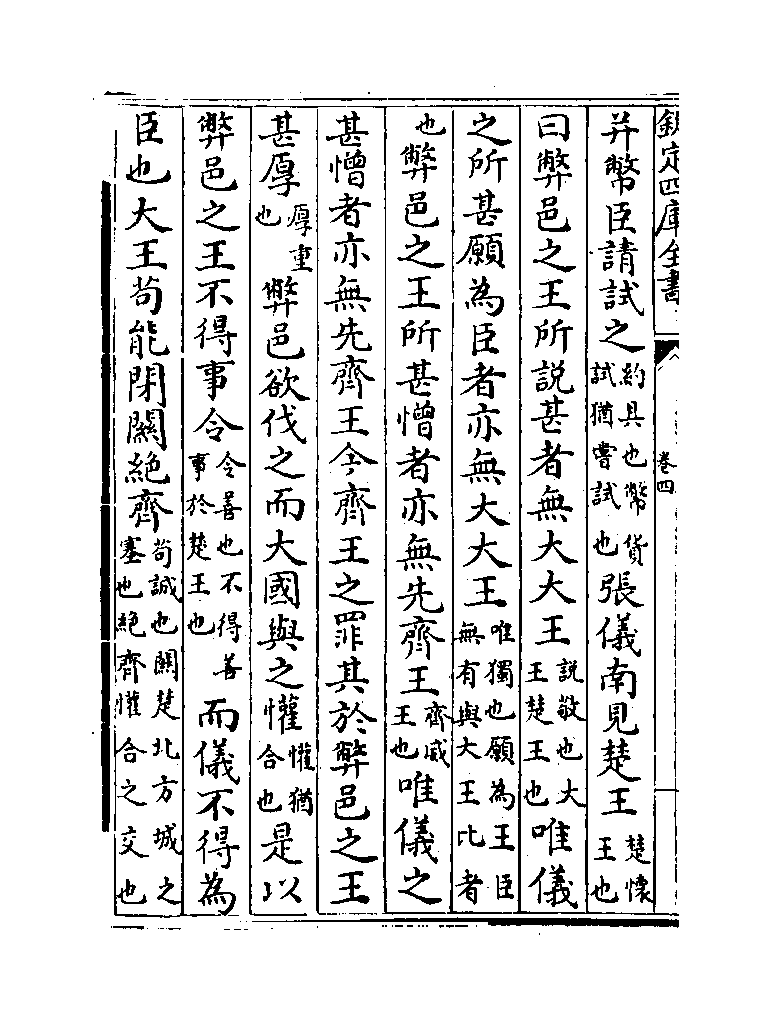 欽定四庫全書
卷四
并幣臣請試之約具也幣貨試猶嘗試也張儀南見楚王楚懷王也
曰弊邑之王所説甚者無大大王説敬也大王楚王也唯儀
之所甚願為臣者亦無大大王唯獨也願為王臣無有與大王比者
也弊邑之王所甚憎者亦無先齊王齊威王也唯儀之
甚憎者亦無先齊王今齊王之罪其於弊邑之王
甚厚厚重也弊邑欲伐之而大國與之懽懽猶合也是以
弊邑之王不得事令令善也不得善事於楚王也而儀不得為
臣也大王茍能閉闗絶齊茍誠也闗楚北方城之塞也絶齊懽合之交也